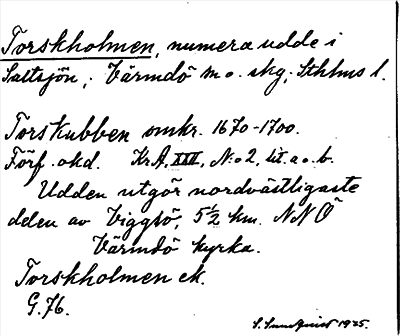 Torskholmen, numera udde i
Saltsjön; Värmdö m. o. skg; Sthlms l.
Torskubben omkr. 1670-1700.
Förf. okd. Kr.A. XXX, N:o 2, lit. a o. b.
Udden utgör nordvästligaste
delen av Viggsö, 5½ km. NNÖ
Värmdö kyrka.
Torskholmen ek.
G.76.
S. Sundquist 1925.